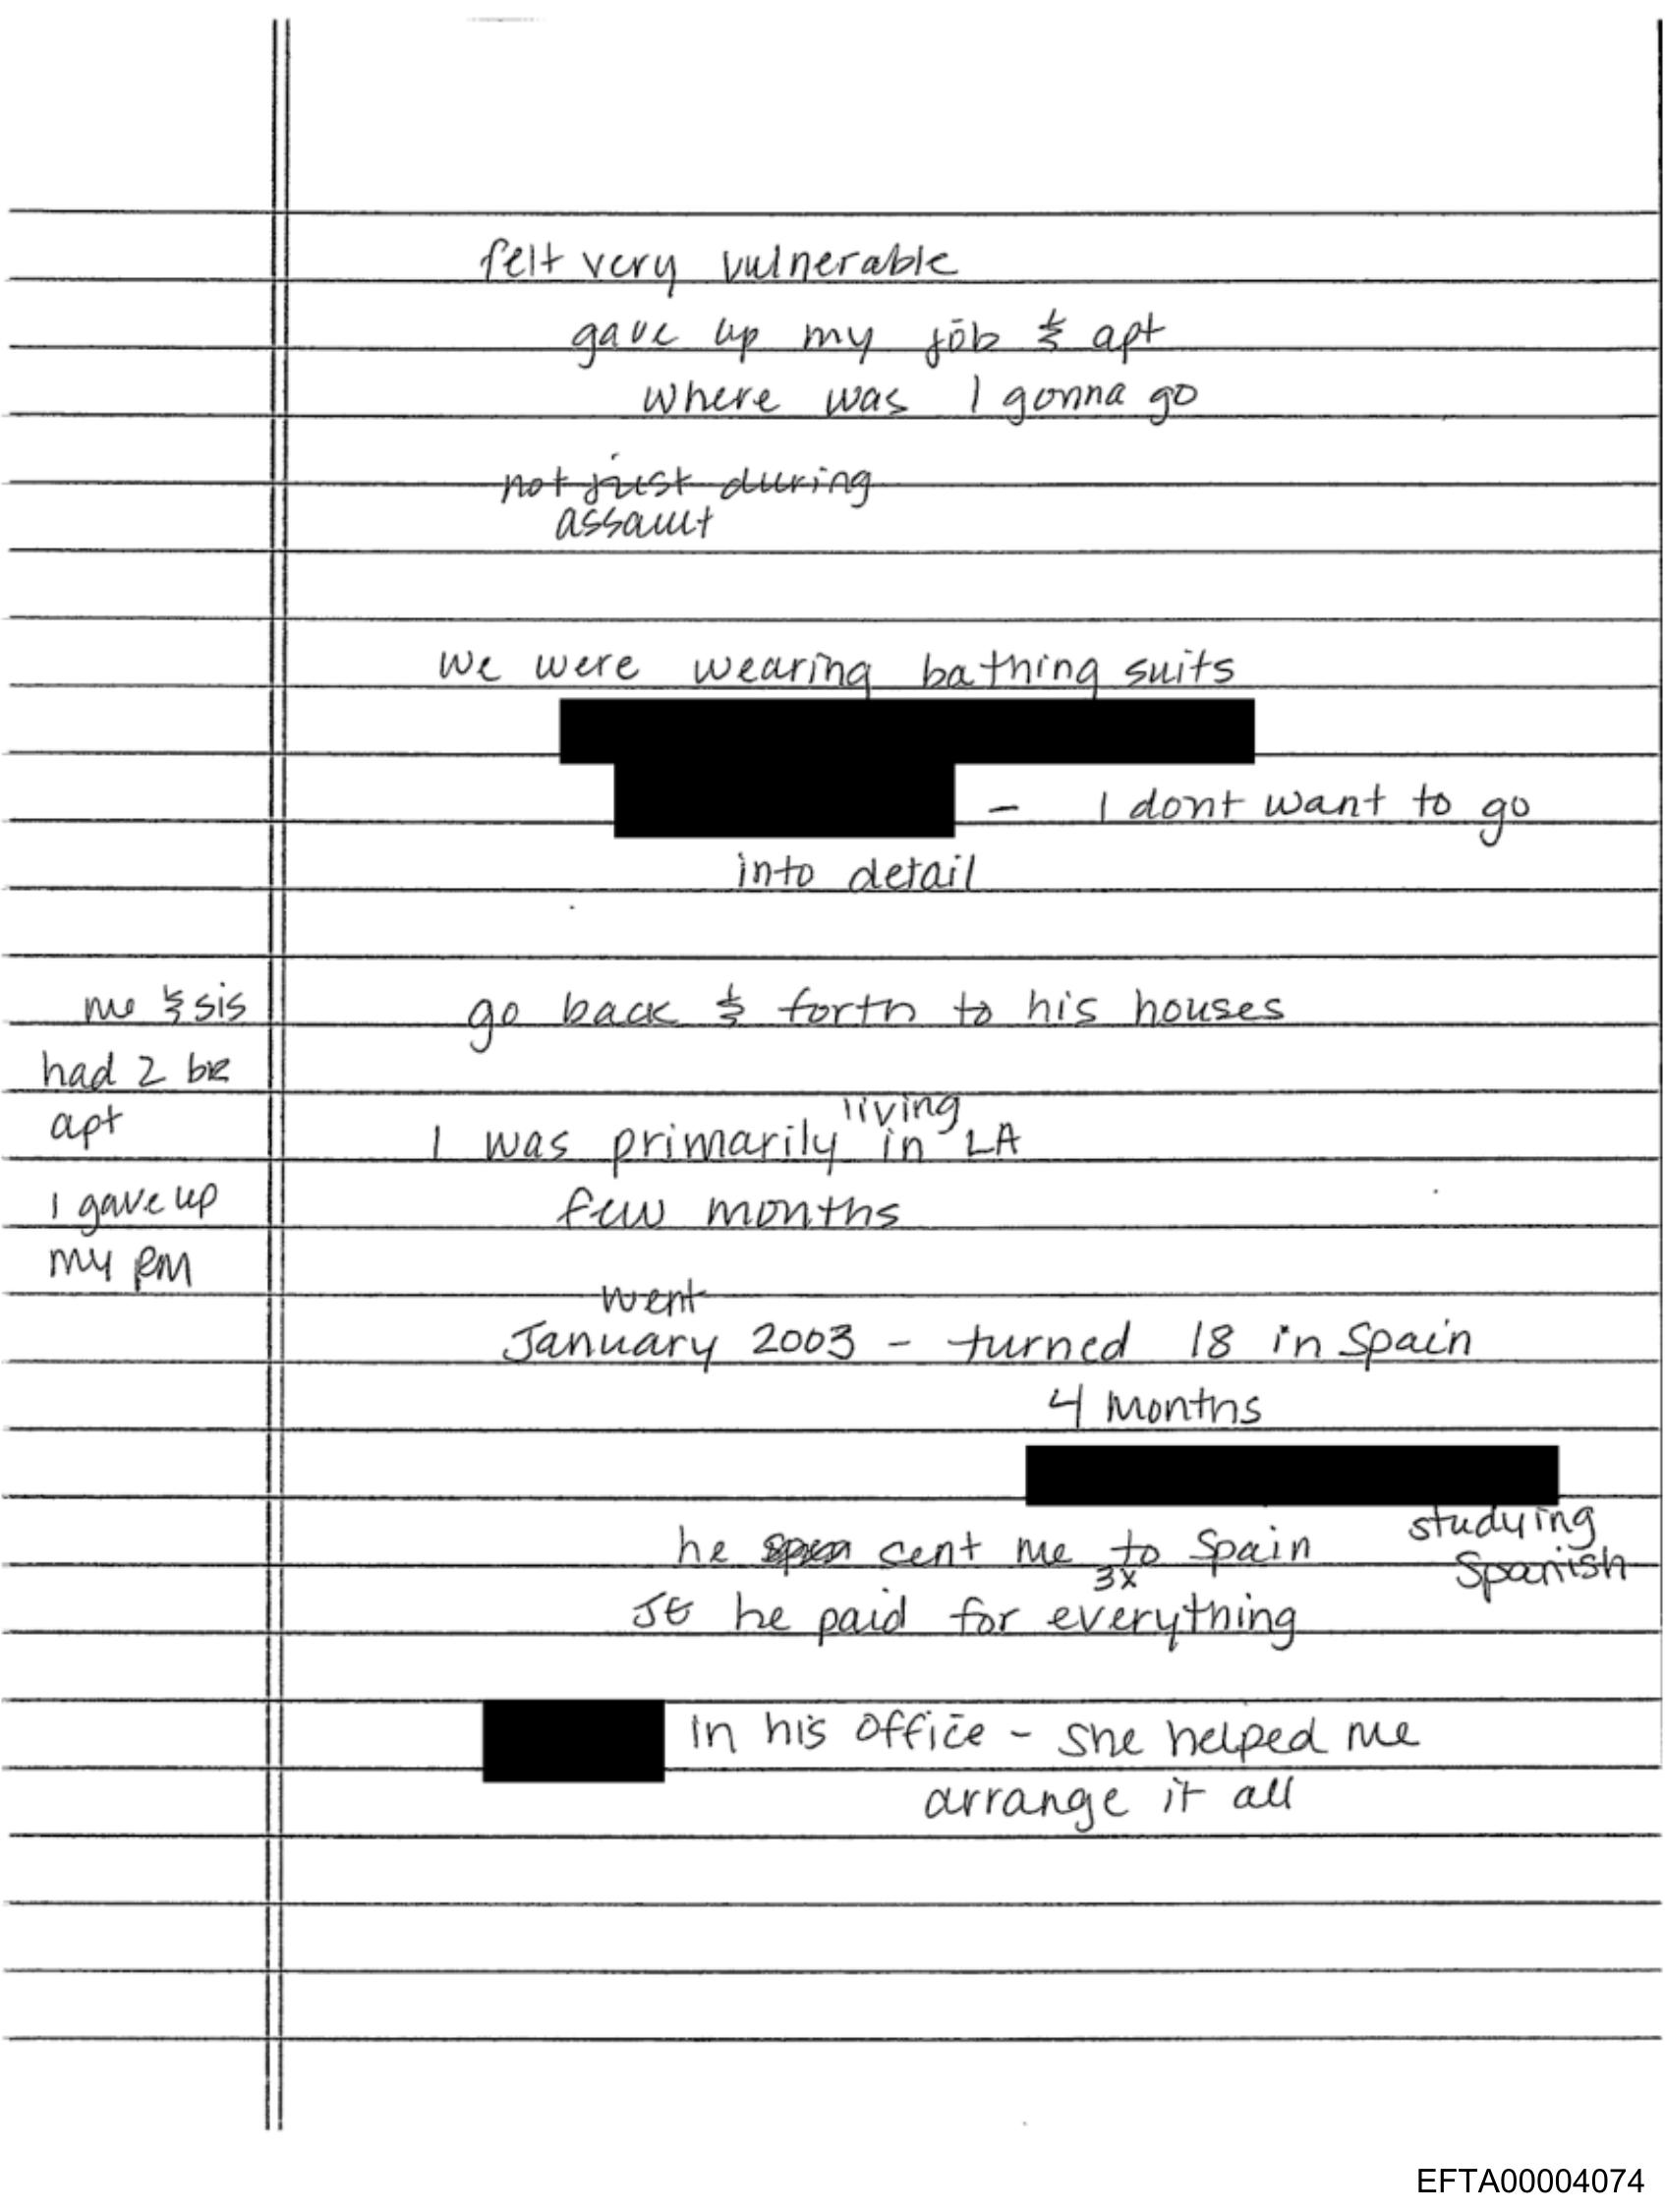 felt very vulnerable
gave up my job & apt
where was I gonna go
not just during
assault
we were wearing bathing suits
- I dont want to go
into detail
me & sis
had 2 br
apt
I gave up
my RM
go back & forth to his houses
I was primarily living in LA
few months
went
January 2003 - turned 18 in Spain
4 months
studying
Spanish
he sent me to Spain
3x
JE he paid for everything
in his office - she helped me
arrange it all
EFTA00004074